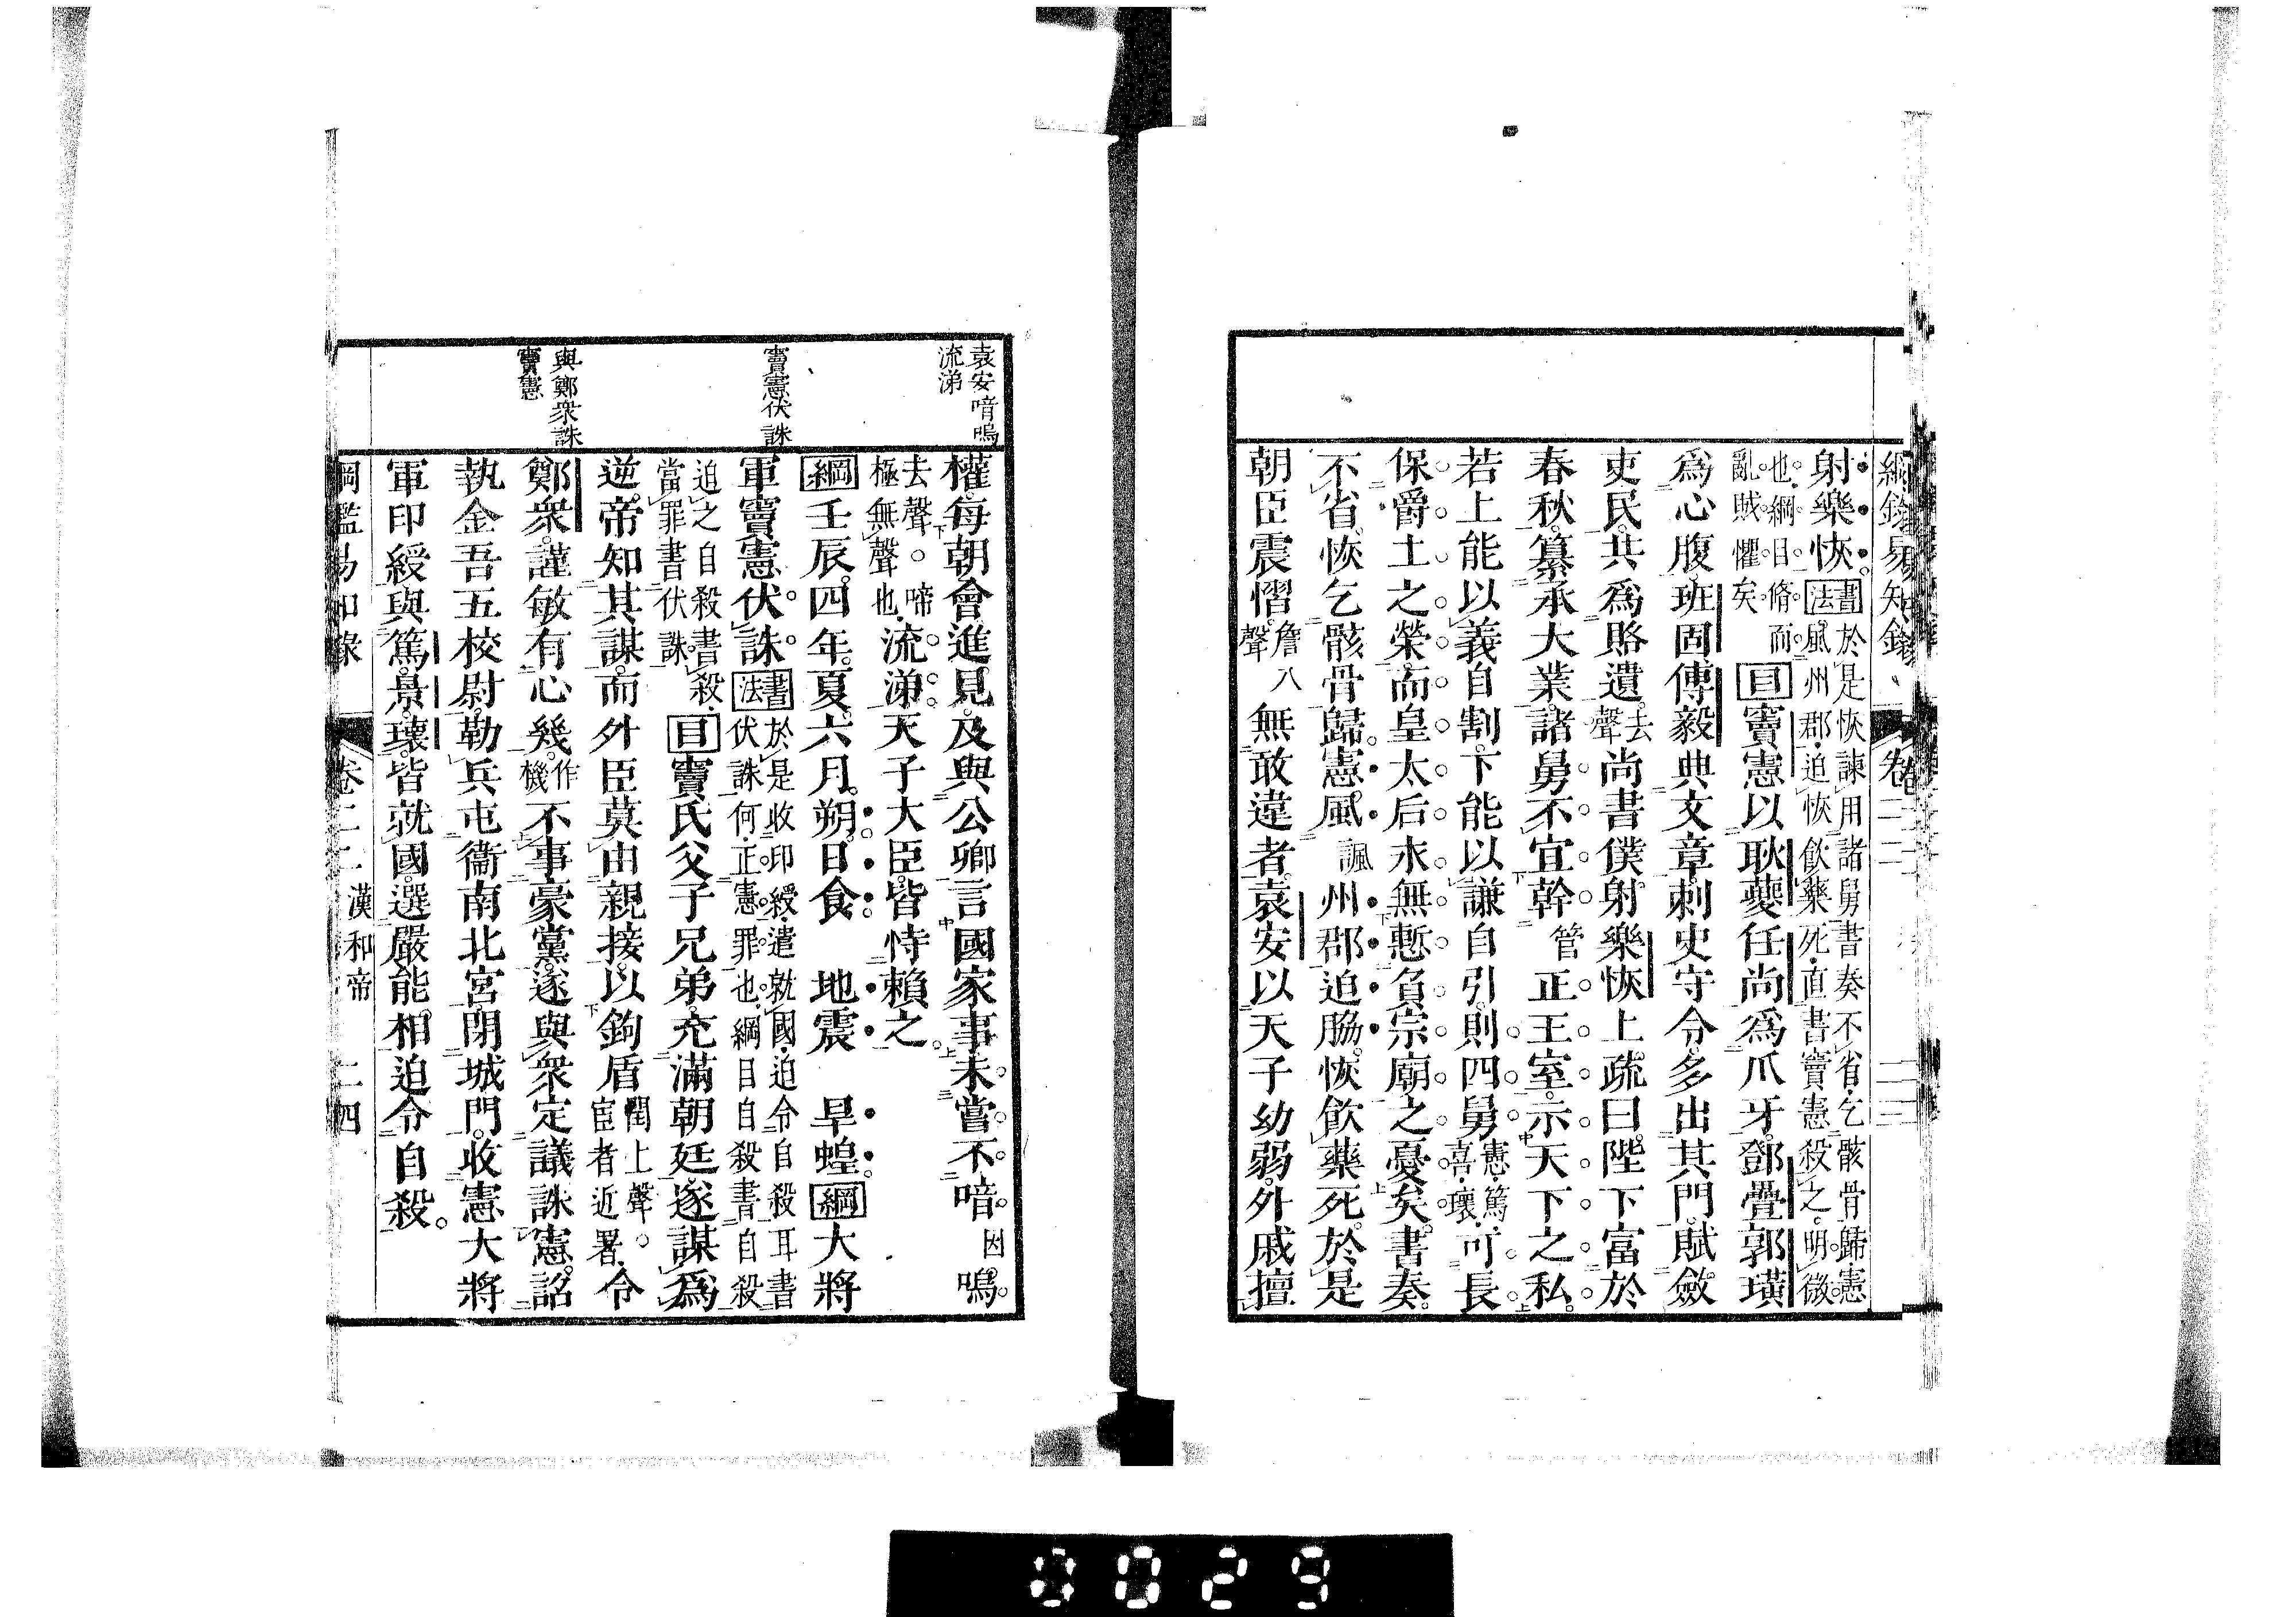 綱鑑易知錄 卷二二 二三
射樂恢。書法於是恢諫用諸舅書奏不省乞骸骨歸憲風州郡迫恢飮藥死直書竇憲殺之明微
也綱目脩而亂賊懼矣目竇憲以耿夔任尚爲爪牙鄧疊郭璜
爲心腹班固傅毅典文章刺史守令多出其門賦斂
吏民共爲賂遺去聲尚書僕射樂恢上疏曰陛下富於
春秋纂承大業諸舅不宜幹管正王室示天下之私
若上能以義自割下能以謙自引則四舅憲篤景瓌可長
保爵土之榮而皇太后永無慙負宗廟之憂矣書奏
不省恢乞骸骨歸憲風諷州郡迫脇恢飮藥死於是
朝臣震慴詹入聲無敢違者袁安以天子幼弱外戚擅
袁安喑嗚流涕
權每朝會進見及與公卿言國家事未嘗不喑因嗚
去聲。啼極無聲也流涕天子大臣皆恃賴之
綱壬辰四年夏六月朔日食 地震 旱蝗綱大將
竇憲伏誅
軍竇憲伏誅書法於是收印綬遣就國迫令自殺耳書伏誅何正憲罪也綱目自殺書自殺
迫之自殺書殺當罪書伏誅目竇氏父子兄弟充滿朝廷遂謀爲
逆帝知其謀而外臣莫由親接以鉤盾閏上聲。宦者近署令
與鄭衆誅竇憲
鄭衆謹敏有心幾作機不事豪黨遂與衆定議誅憲詔
執金吾五校尉勒兵屯衞南北宮閉城門收憲大將
軍印綬與篤景瓌皆就國選嚴能相迫令自殺
綱鑑易知錄 卷二二 漢和帝 二四
0029